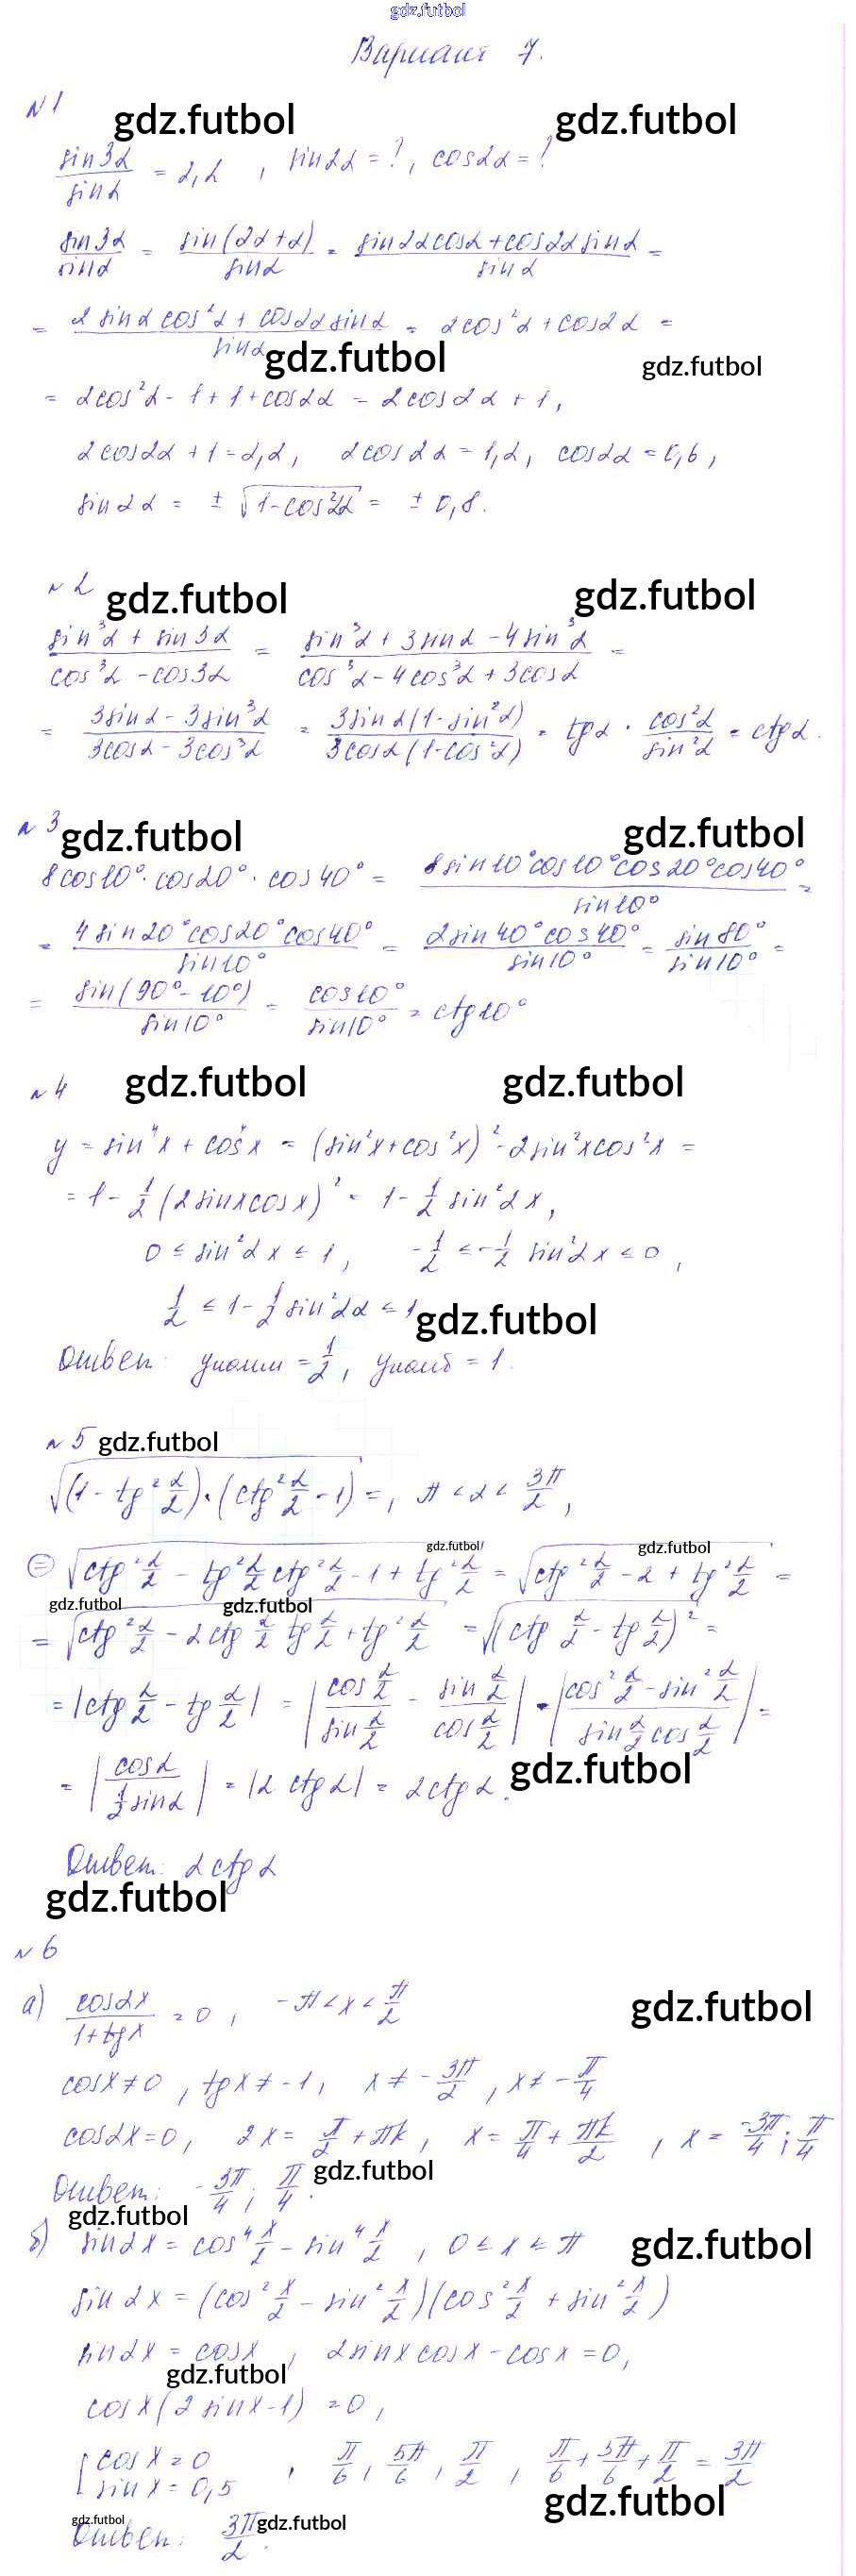 gdz.futbol
Вариант 7.
№1
gdz.futbol gdz.futbol
sin3α/sinα = 2,2 , sin2α = ?, cos2α = ?
sin3α/sinα = sin(2α+α)/sinα = (sin2αcosα+cos2αsinα)/sinα =
= (2sinαcos²α + cos2αsinα)/sinα = 2cos²α + cos2α =
gdz.futbol gdz.futbol
= 2cos²α - 1 + 1 + cos2α = 2cos2α + 1,
2cos2α + 1 = 2,2, 2cos2α = 1,2, cos2α = 0,6,
sin2α = ± √(1-cos²2α) = ± 0,8.
№2
gdz.futbol gdz.futbol
(sin³α + sin3α)/(cos³α - cos3α) = (sin³α + 3sinα - 4sin³α)/(cos³α - 4cos³α + 3cosα) =
= (3sinα - 3sin³α)/(3cosα - 3cos³α) = 3sinα(1-sin²α)/3cosα(1-cos²α) = tgα · cos²α/sin²α = ctgα.
№3
gdz.futbol gdz.futbol
8cos10°·cos20°·cos40° = 8sin10°cos10°cos20°cos40°/sin10° =
= 4sin20°cos20°cos40°/sin10° = 2sin40°cos40°/sin10° = sin80°/sin10° =
= sin(90°-10°)/sin10° = cos10°/sin10° = ctg10°
№4
gdz.futbol gdz.futbol
y = sin⁴x + cos⁴x = (sin²x+cos²x)² - 2sin²xcos²x =
= 1 - 1/2 (2sinxcosx)² = 1 - 1/2 sin²2x,
0 ≤ sin²2x ≤ 1, -1/2 ≤ -1/2 sin²2x ≤ 0,
1/2 ≤ 1 - 1/2 sin²2α ≤ 1
gdz.futbol
Ответ: yнаим = 1/2, yнаиб = 1.
№5
gdz.futbol
√((1 - tg² α/2)·(ctg² α/2 - 1)) =, π < α < 3π/2,
gdz.futbol gdz.futbol
= √(ctg² α/2 - tg² α/2 ctg² α/2 - 1 + tg² α/2) = √(ctg² α/2 - 2 + tg² α/2) =
gdz.futbol gdz.futbol
= √(ctg² α/2 - 2ctg α/2 tg α/2 + tg² α/2) = √((ctg α/2 - tg α/2)²) =
= |ctg α/2 - tg α/2| = |cos α/2 / sin α/2 - sin α/2 / cos α/2| = |(cos² α/2 - sin² α/2)/(sin α/2 cos α/2)| =
= |cosα/(1/2 sinα)| = |2ctgα| = 2ctgα.
gdz.futbol
Ответ: 2ctgα
gdz.futbol
№6
а) cos2x/(1+tgx) = 0, -π < x < π/2
gdz.futbol
cosx ≠ 0, tgx ≠ -1, x ≠ -3π/2, x ≠ -π/4
cos2x = 0, 2x = π/2 + πk, x = π/4 + πk/2, x = -3π/4; π/4
Ответ: -3π/4; π/4.
gdz.futbol
gdz.futbol
б) sin2x = cos⁴ x/2 - sin⁴ x/2, 0 ≤ x ≤ π
gdz.futbol
sin2x = (cos² x/2 - sin² x/2)(cos² x/2 + sin² x/2)
sin2x = cosx, 2sinxcosx - cosx = 0,
gdz.futbol
cosx(2sinx-1) = 0,
[cosx = 0
sinx = 0,5 , π/6, 5π/6, π/2, π/6 + 5π/6 + π/2 = 3π/2
gdz.futbol
gdz.futbol gdz.futbol
Ответ: 3π/2.